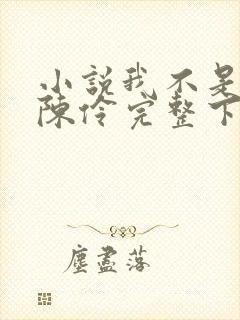 小説我不是
陳伶完整下
塵盡落